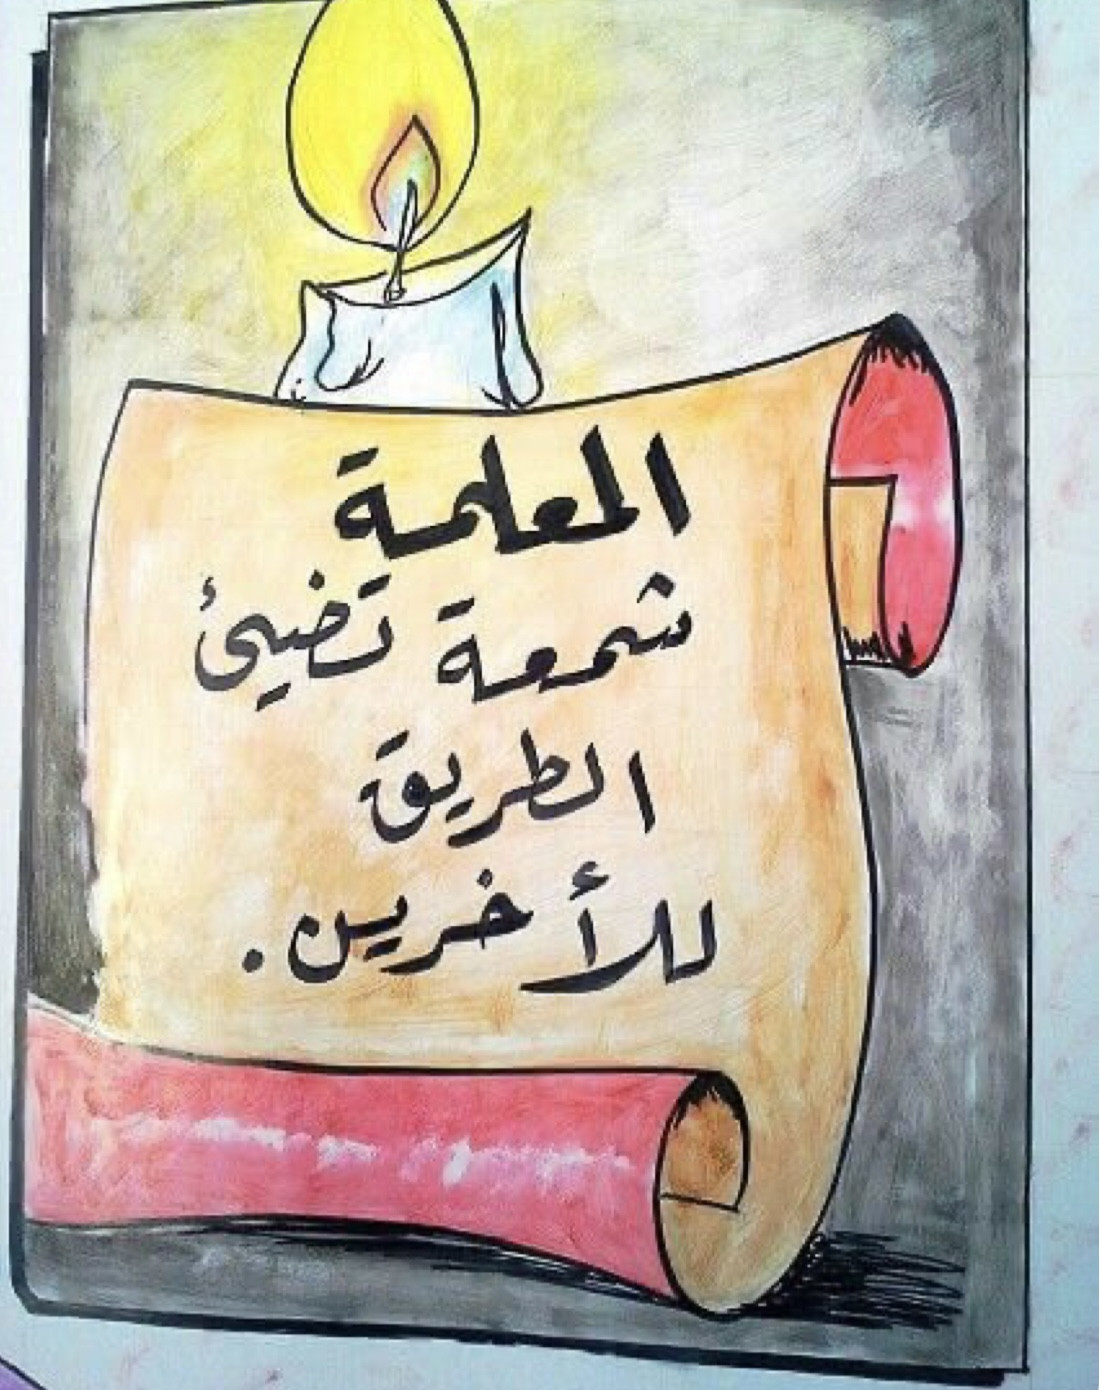 المعلمة
شمعة تضيئ
الطريق
للأخرين.